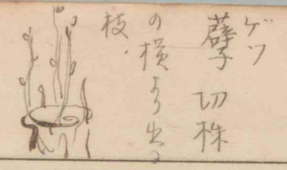 ゲツ
蘖 切株
の横より出る
枝.